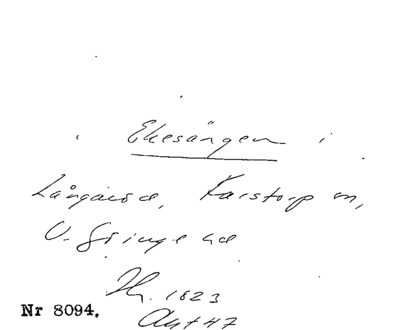 Ekesången i
Långaröd, Karstorp m,
V. Göinge hd
Hs. 1823
Akt 47
Nr 8094.